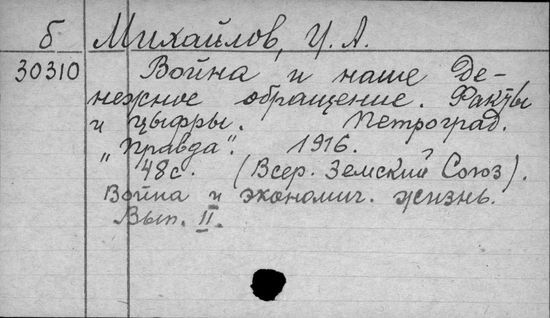 б Михайлов, И. А.
30310 Война и наше Де-
нежное обращение. Факты
и цыфры. Петроград.
„Правда". 1916.
48с. (Всер. Земский Союз).
Война и экономич. жизнь.
Вып. II.